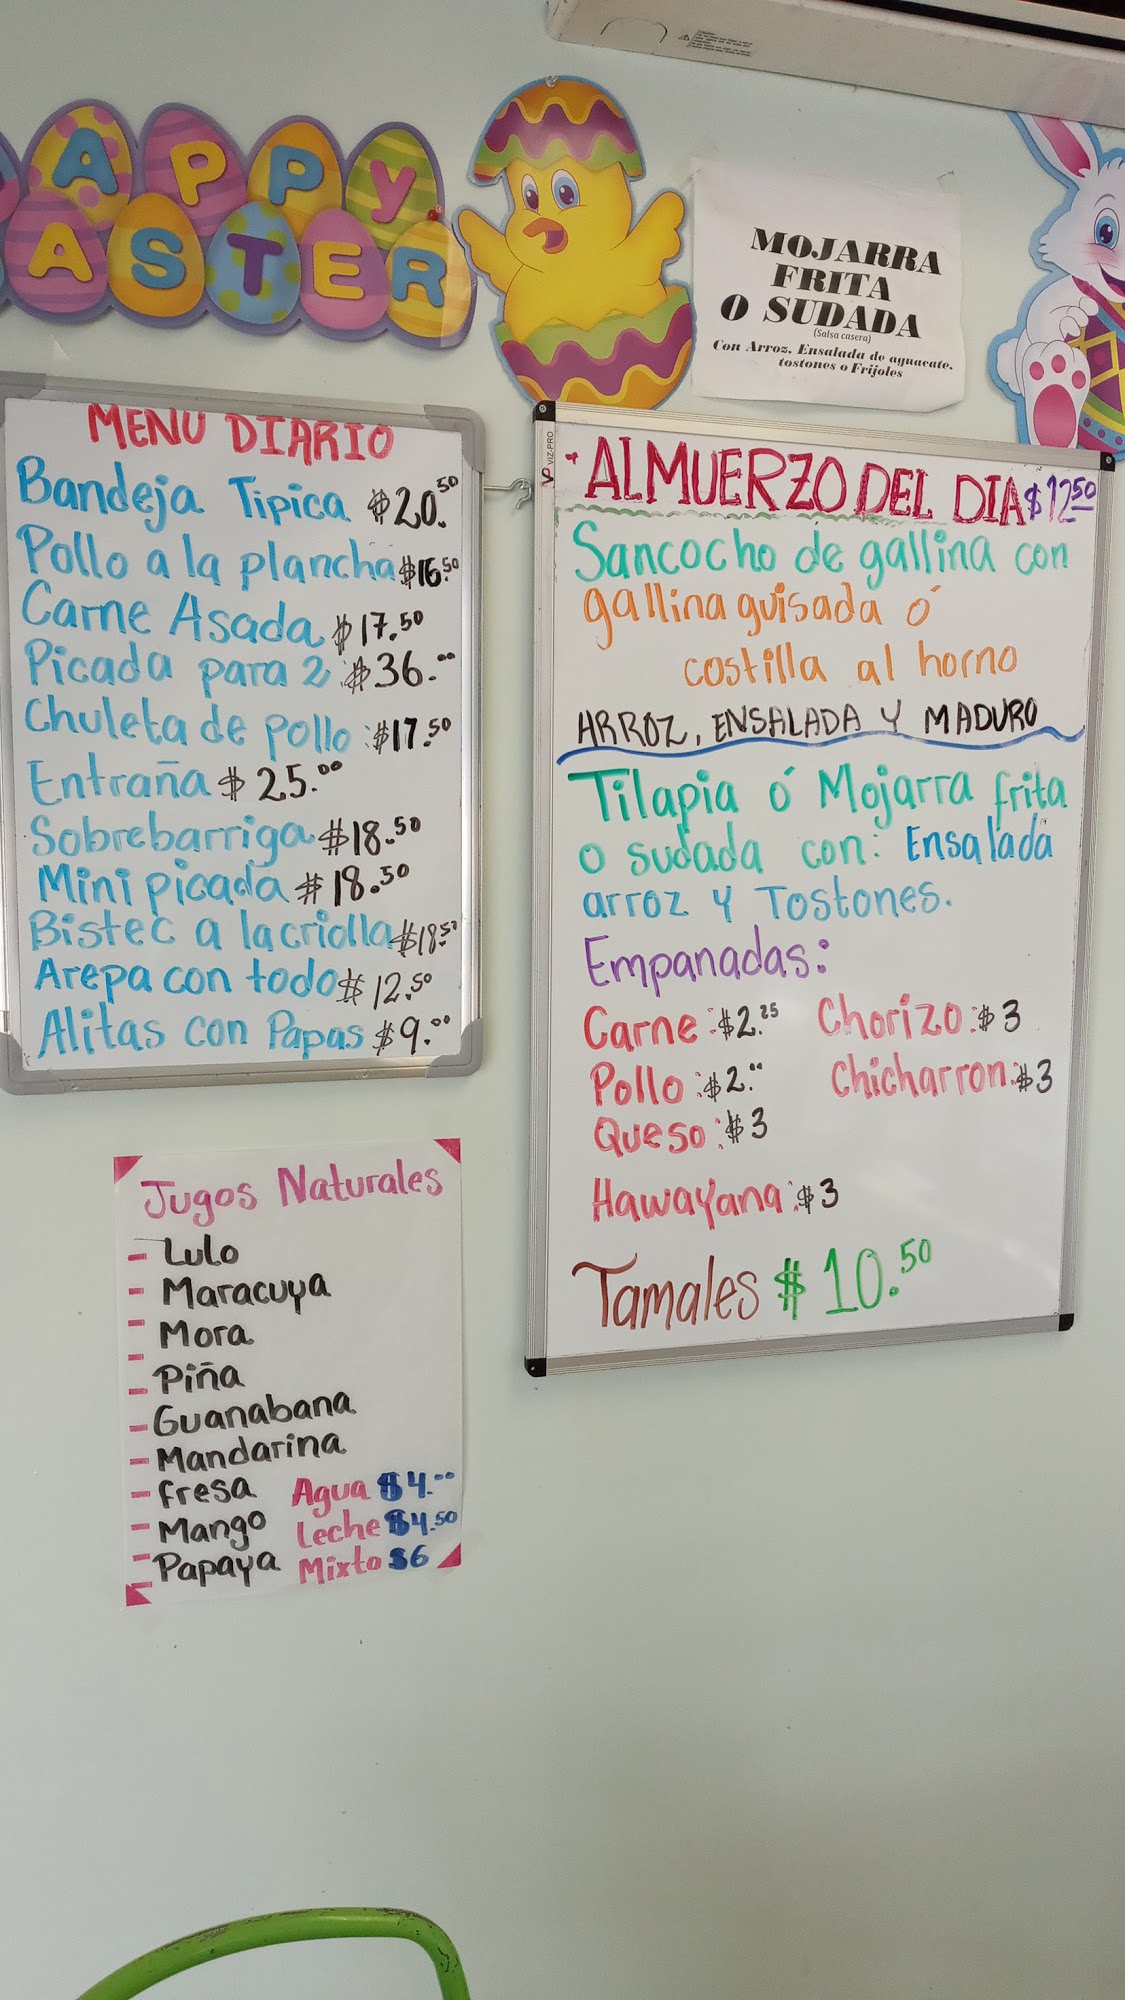 APPY
ASTER
MOJARRA
FRITA
O SUDADA
(Salsa casera)
Con Arroz, Ensalada de aguacate,
tostones o Frijoles
MENU DIARIO
Bandeja Tipica $20.50
Pollo a la plancha $16.50
Carne Asada $17.50
Picada para 2 : $36.00
Chuleta de pollo : $17.50
Entraña $25.00
Sobrebarriga $18.50
Mini picada $18.50
Bistec a la criolla $18.50
Arepa con todo $12.50
Alitas con Papas $9.00
VIZ-PRO
ALMUERZO DEL DIA $12.50
Sancocho de gallina con
gallina guisada ó
costilla al horno
ARROZ, ENSALADA Y MADURO
Tilapia ó Mojarra frita
o sudada con: Ensalada
arroz y Tostones.
Empanadas:
Carne : $2.25 Chorizo : $3
Pollo : $2.00 Chicharron : $3
Queso : $3
Hawayana : $3
Tamales $10.50
Jugos Naturales
- Lulo
- Maracuya
- Mora
- Piña
- Guanabana
- Mandarina
- fresa Agua $4.00
- Mango Leche $4.50
- Papaya Mixto $6